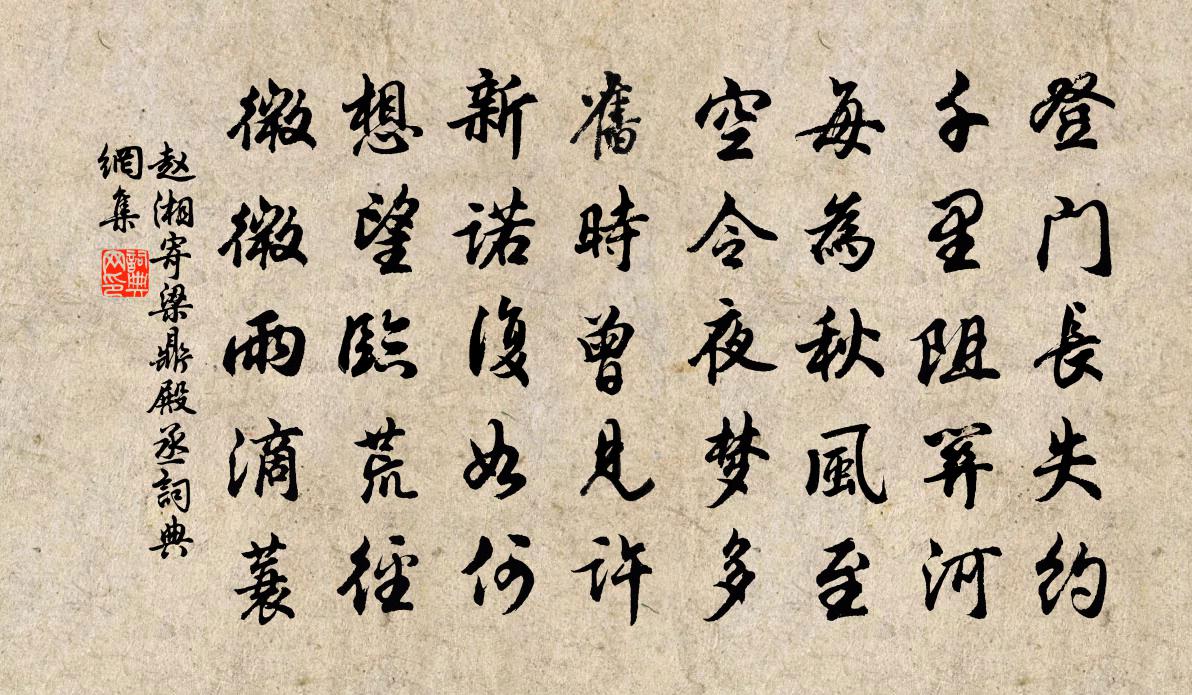 登门長失约
千里阻關河
每為秋風至
空令夜梦多
舊時曾見許
新諾復如何
想望臨荒徑
微微雨滴蓑
赵湘寄梁鼎殿丞詞典
網集
詞典
网印